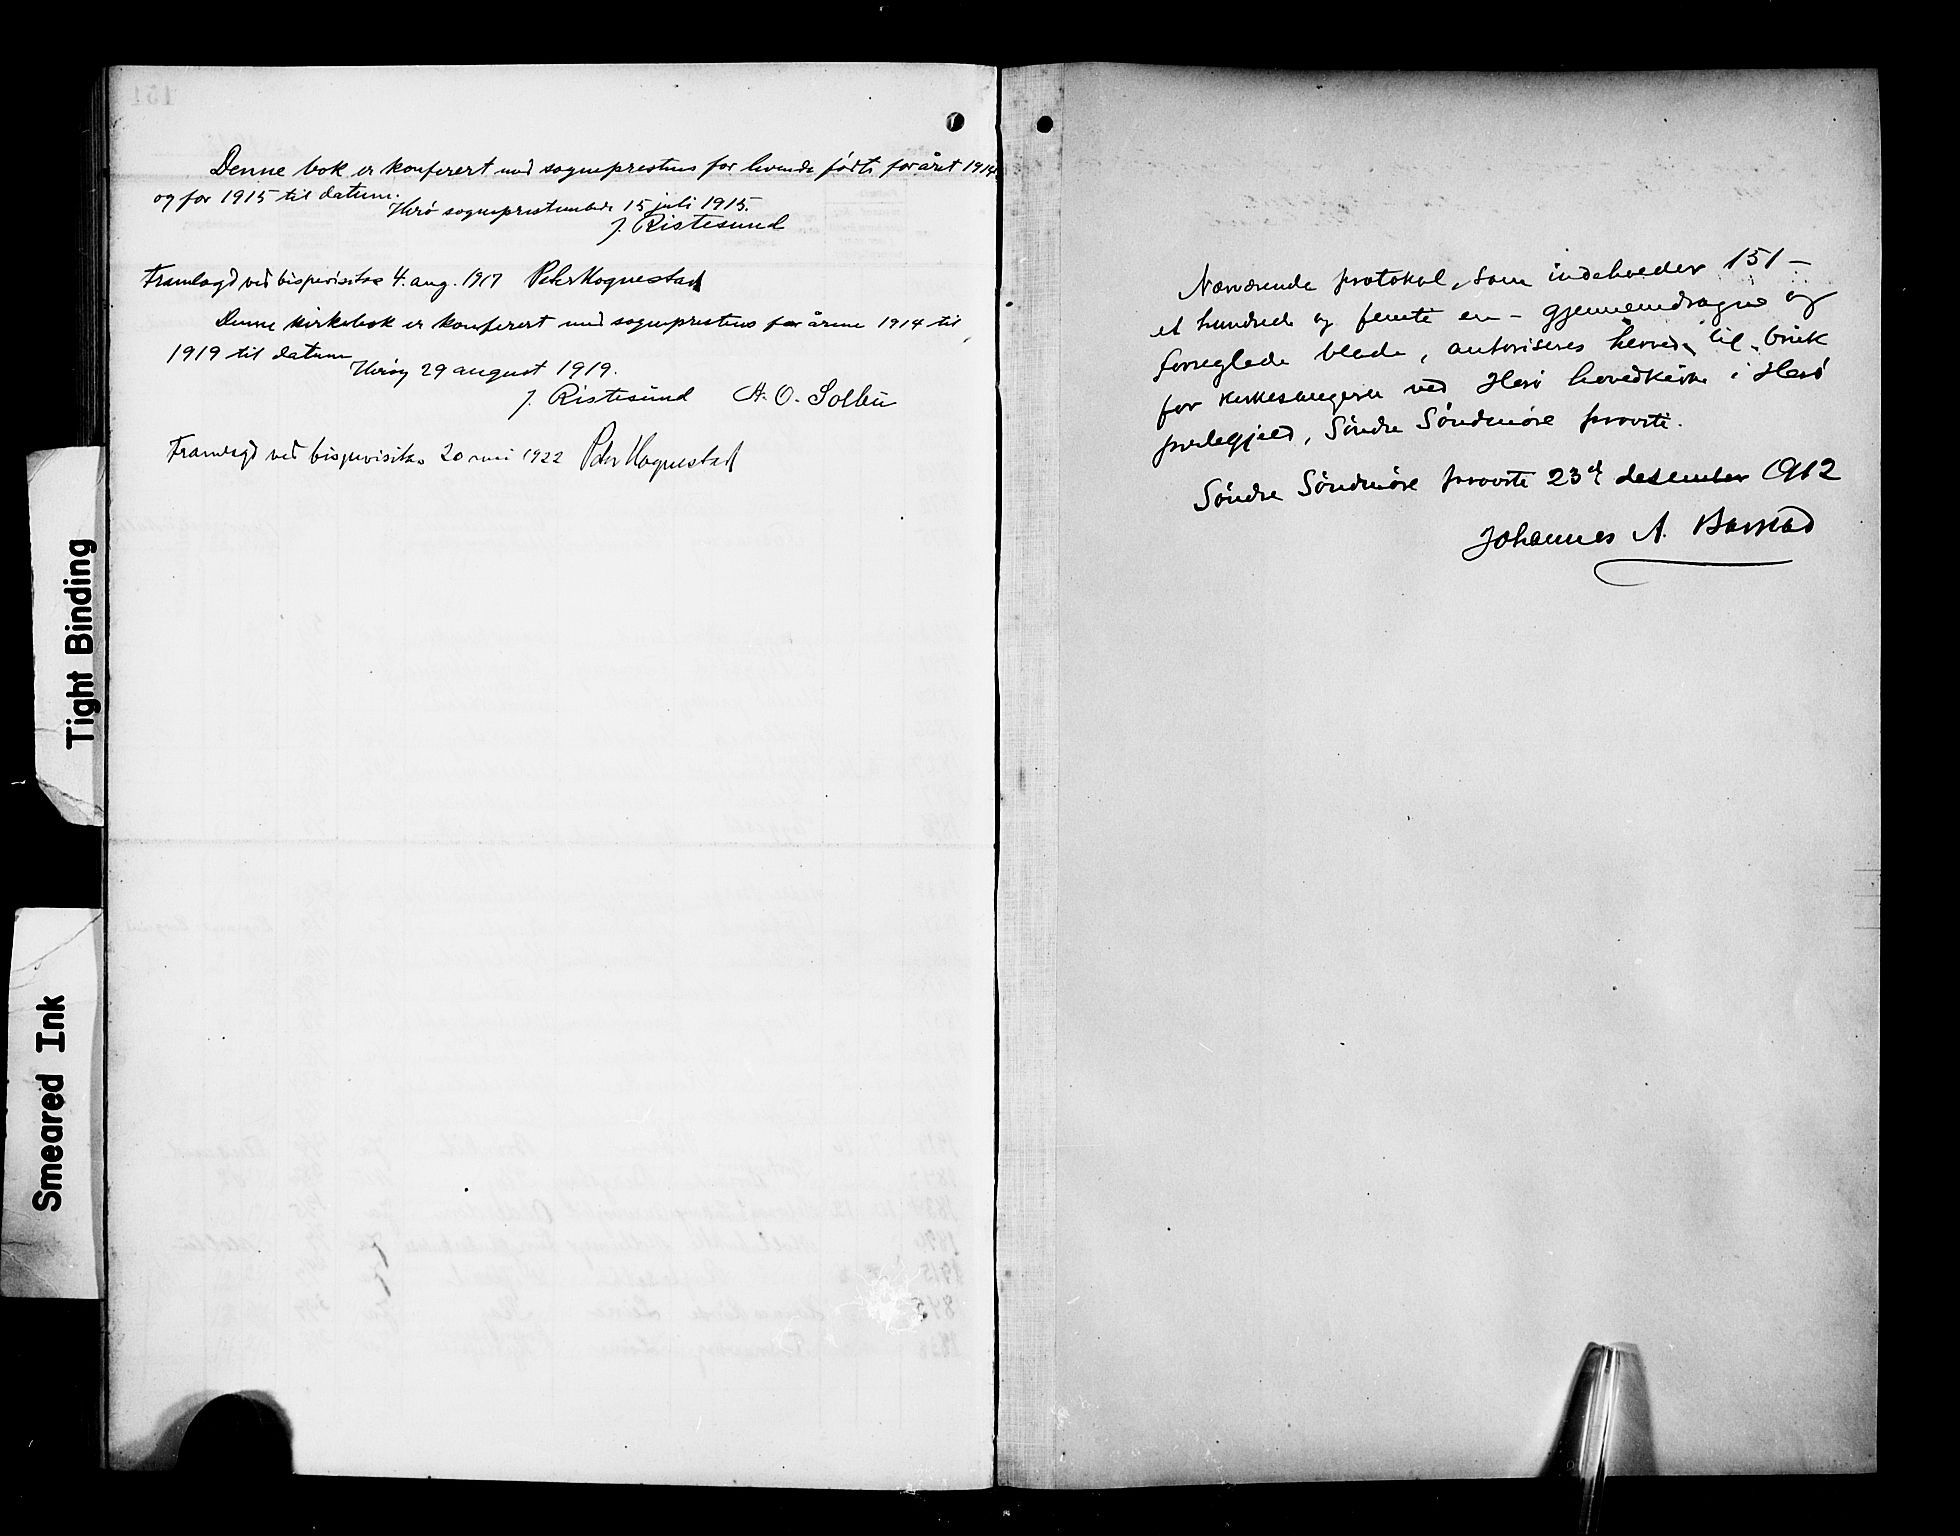 Denne bok er konferert med sogneprestens for levende födte for året 1914
og for 1915 til datum.
Herö sogneprestembede 15 juli 1915.
J. Ristesund
Framlagd ved bispevisitas 4. aug. 1917 Peter Hognestad
Denne kirkebok er konferert med sogneprestens for årene 1914 til
1919 til datum
Heröy 29 august 1919.
J. Ristesund A. O. Solbu
Framlagd ved bispevisitas 20 mai 1922 Peter Hognestad
Nærværende protokol, som indeholder 151 –
et hundrede og femti en – gjennemdragne og
forseglede blade, autoriseres herved til bruk
for kirkesangeren ved Herö hovedkirke i Herö
prestegjeld, Söndre Söndmöre provsti.
Söndre Söndmöre provsti 23de desember 1912
Johannes A. Barstad
Tight Binding
Smeared Ink